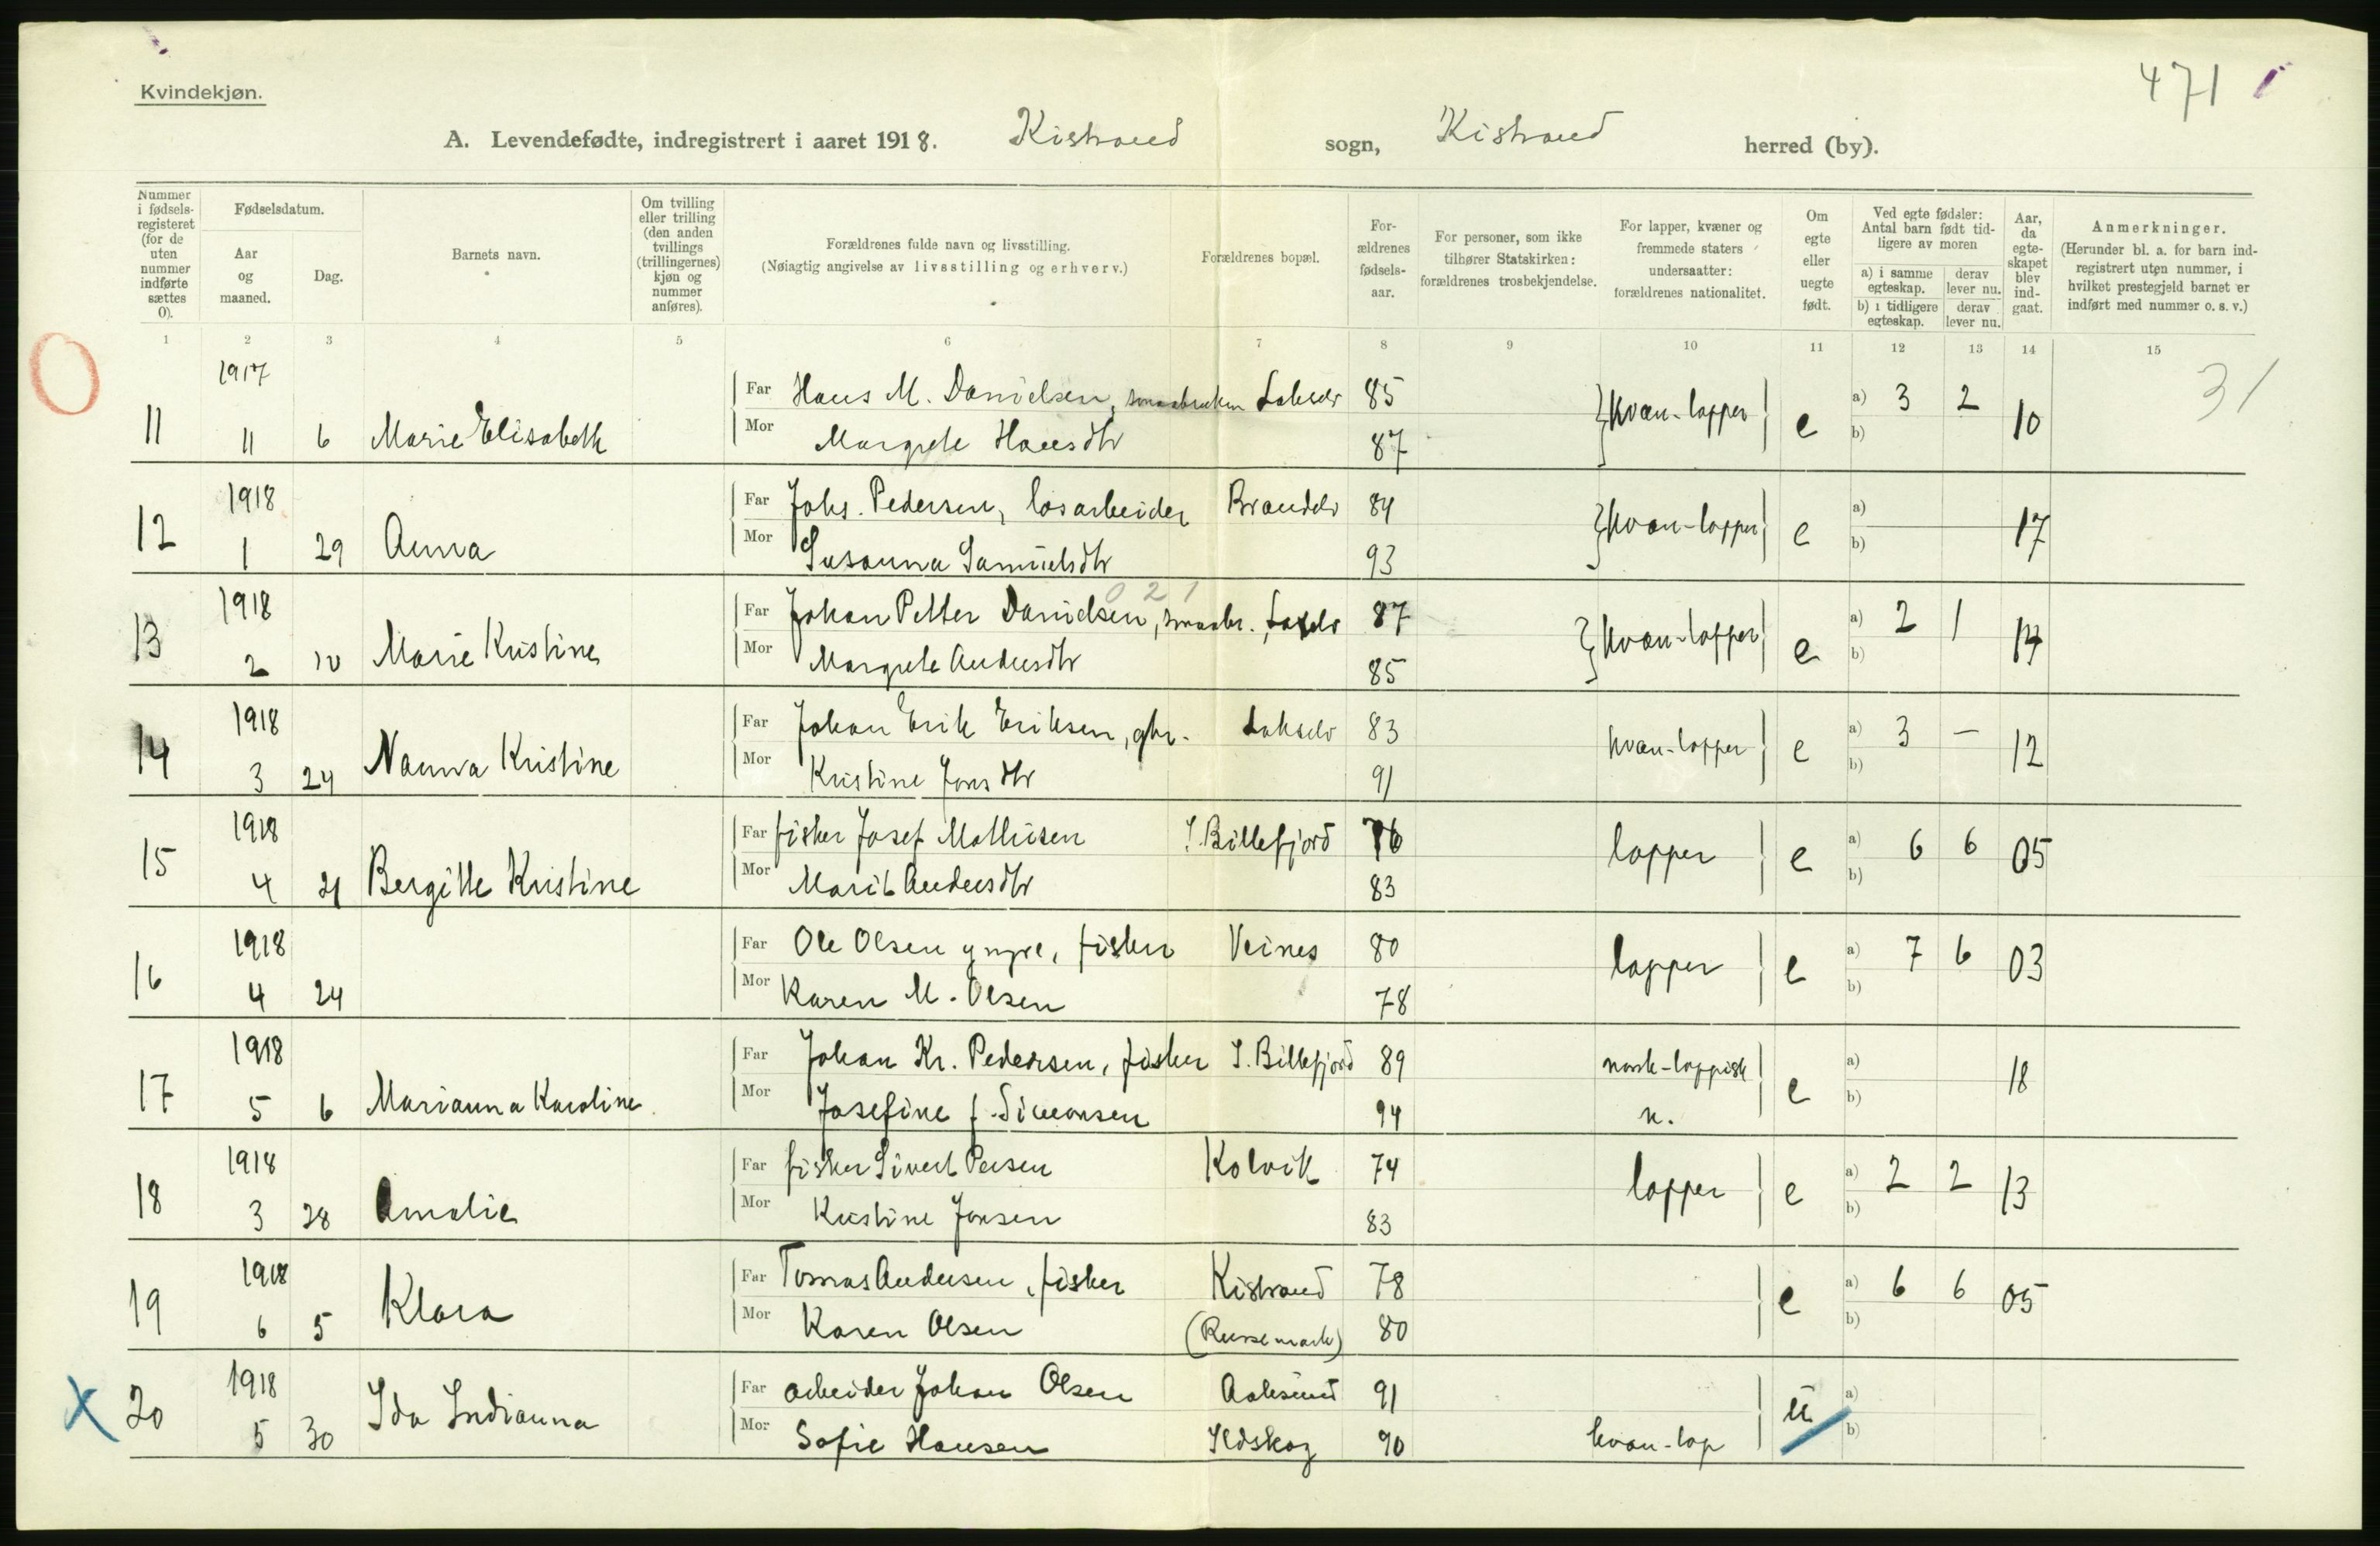 471
Kvindekjøn.
A. Levendefødte, indregistrert i aaret 1918. Kistrand sogn, Kistrand herred (by).
Nummer i fødselsregisteret (for de uten nummer indførte sættes 0).
Fødselsdatum.
Aar og maaned.
Dag.
Barnets navn.
Om tvilling eller trilling (den anden tvillings (trillingernes) kjøn og nummer anføres).
Forældrenes fulde navn og livsstilling.
(Nøiagtig angivelse av livsstilling og erhverv.)
Forældrenes bopæl.
Forældrenes fødselsaar.
For personer, som ikke tilhører Statskirken: forældrenes trosbekjendelse.
For lapper, kvæner og fremmede staters undersaatter: forældrenes nationalitet.
Om egte eller uegte født.
Ved egte fødsler: Antal barn født tidligere av moren
a) i samme egteskap.
derav lever nu.
b) i tidligere egteskap.
derav lever nu.
Aar, da egteskapet blev indgaat.
Anmerkninger.
(Herunder bl. a. for barn indregistrert uten nummer, i hvilket prestegjeld barnet er indført med nummer o. s. v.)
1 2 3 4 5 6 7 8 9 10 11 12 13 14 15
31
1917
11 11 6 Marie Elisabeth
Far Hans M. Danielsen, smaabruker Lakselv 85
Mor Margrete Hansdtr 87
kvæn-lapper e a) 3 2 b) 10
1918
12 1 29 Anna
Far Johs. Pedersen, løsarbeider Brandelv 84
Mor Susanna Samuelsdtr 93
kvæn-lapper e a) b) 17
021
1918
13 2 10 Marie Kristine
Far Johan Petter Danielsen, smaabr., Laxelv 87
Mor Margrete Andersdtr 85
kvæn-lapper e a) 2 1 b) 14
1918
14 3 24 Nanna Kristine
Far Johan Erik Eriksen, gbr. Lakselv 83
Mor Kristine Jonsdtr 91
kvæn-lapper e a) 3 — b) 12
1918
15 4 21 Bergitte Kristine
Far fisker Josef Mathisen I. Billefjord 76
Mor Marit Andersdtr 83
lapper e a) 6 6 b) 05
1918
16 4 24
Far Ole Olsen yngre, fisker Veines 80
Mor Karen M. Olsen 78
lapper e a) 7 6 b) 03
1918
17 5 6 Marianna Karoline
Far Johan Kr. Pedersen, fisker I. Billefjord 89
Mor Josefine f. Simonsen 94
norsk-lappisk
n.
e a) b) 18
1918
18 3 28 Amalie
Far fisker Sivert Persen Kolvik 74
Mor Kristine Jonsen 83
lapper e a) 2 2 b) 13
1918
19 6 5 Klara
Far Tomas Andersen, fisker Kistrand 78
Mor Karen Olsen (Russemark) 80
e a) 6 6 b) 05
1918
x 20 5 30 Ida Indianna
Far arbeider Johan Olsen Aalesund 91
Mor Sofie Hansen Ildskog 90
kvæn-lap
u a) b)